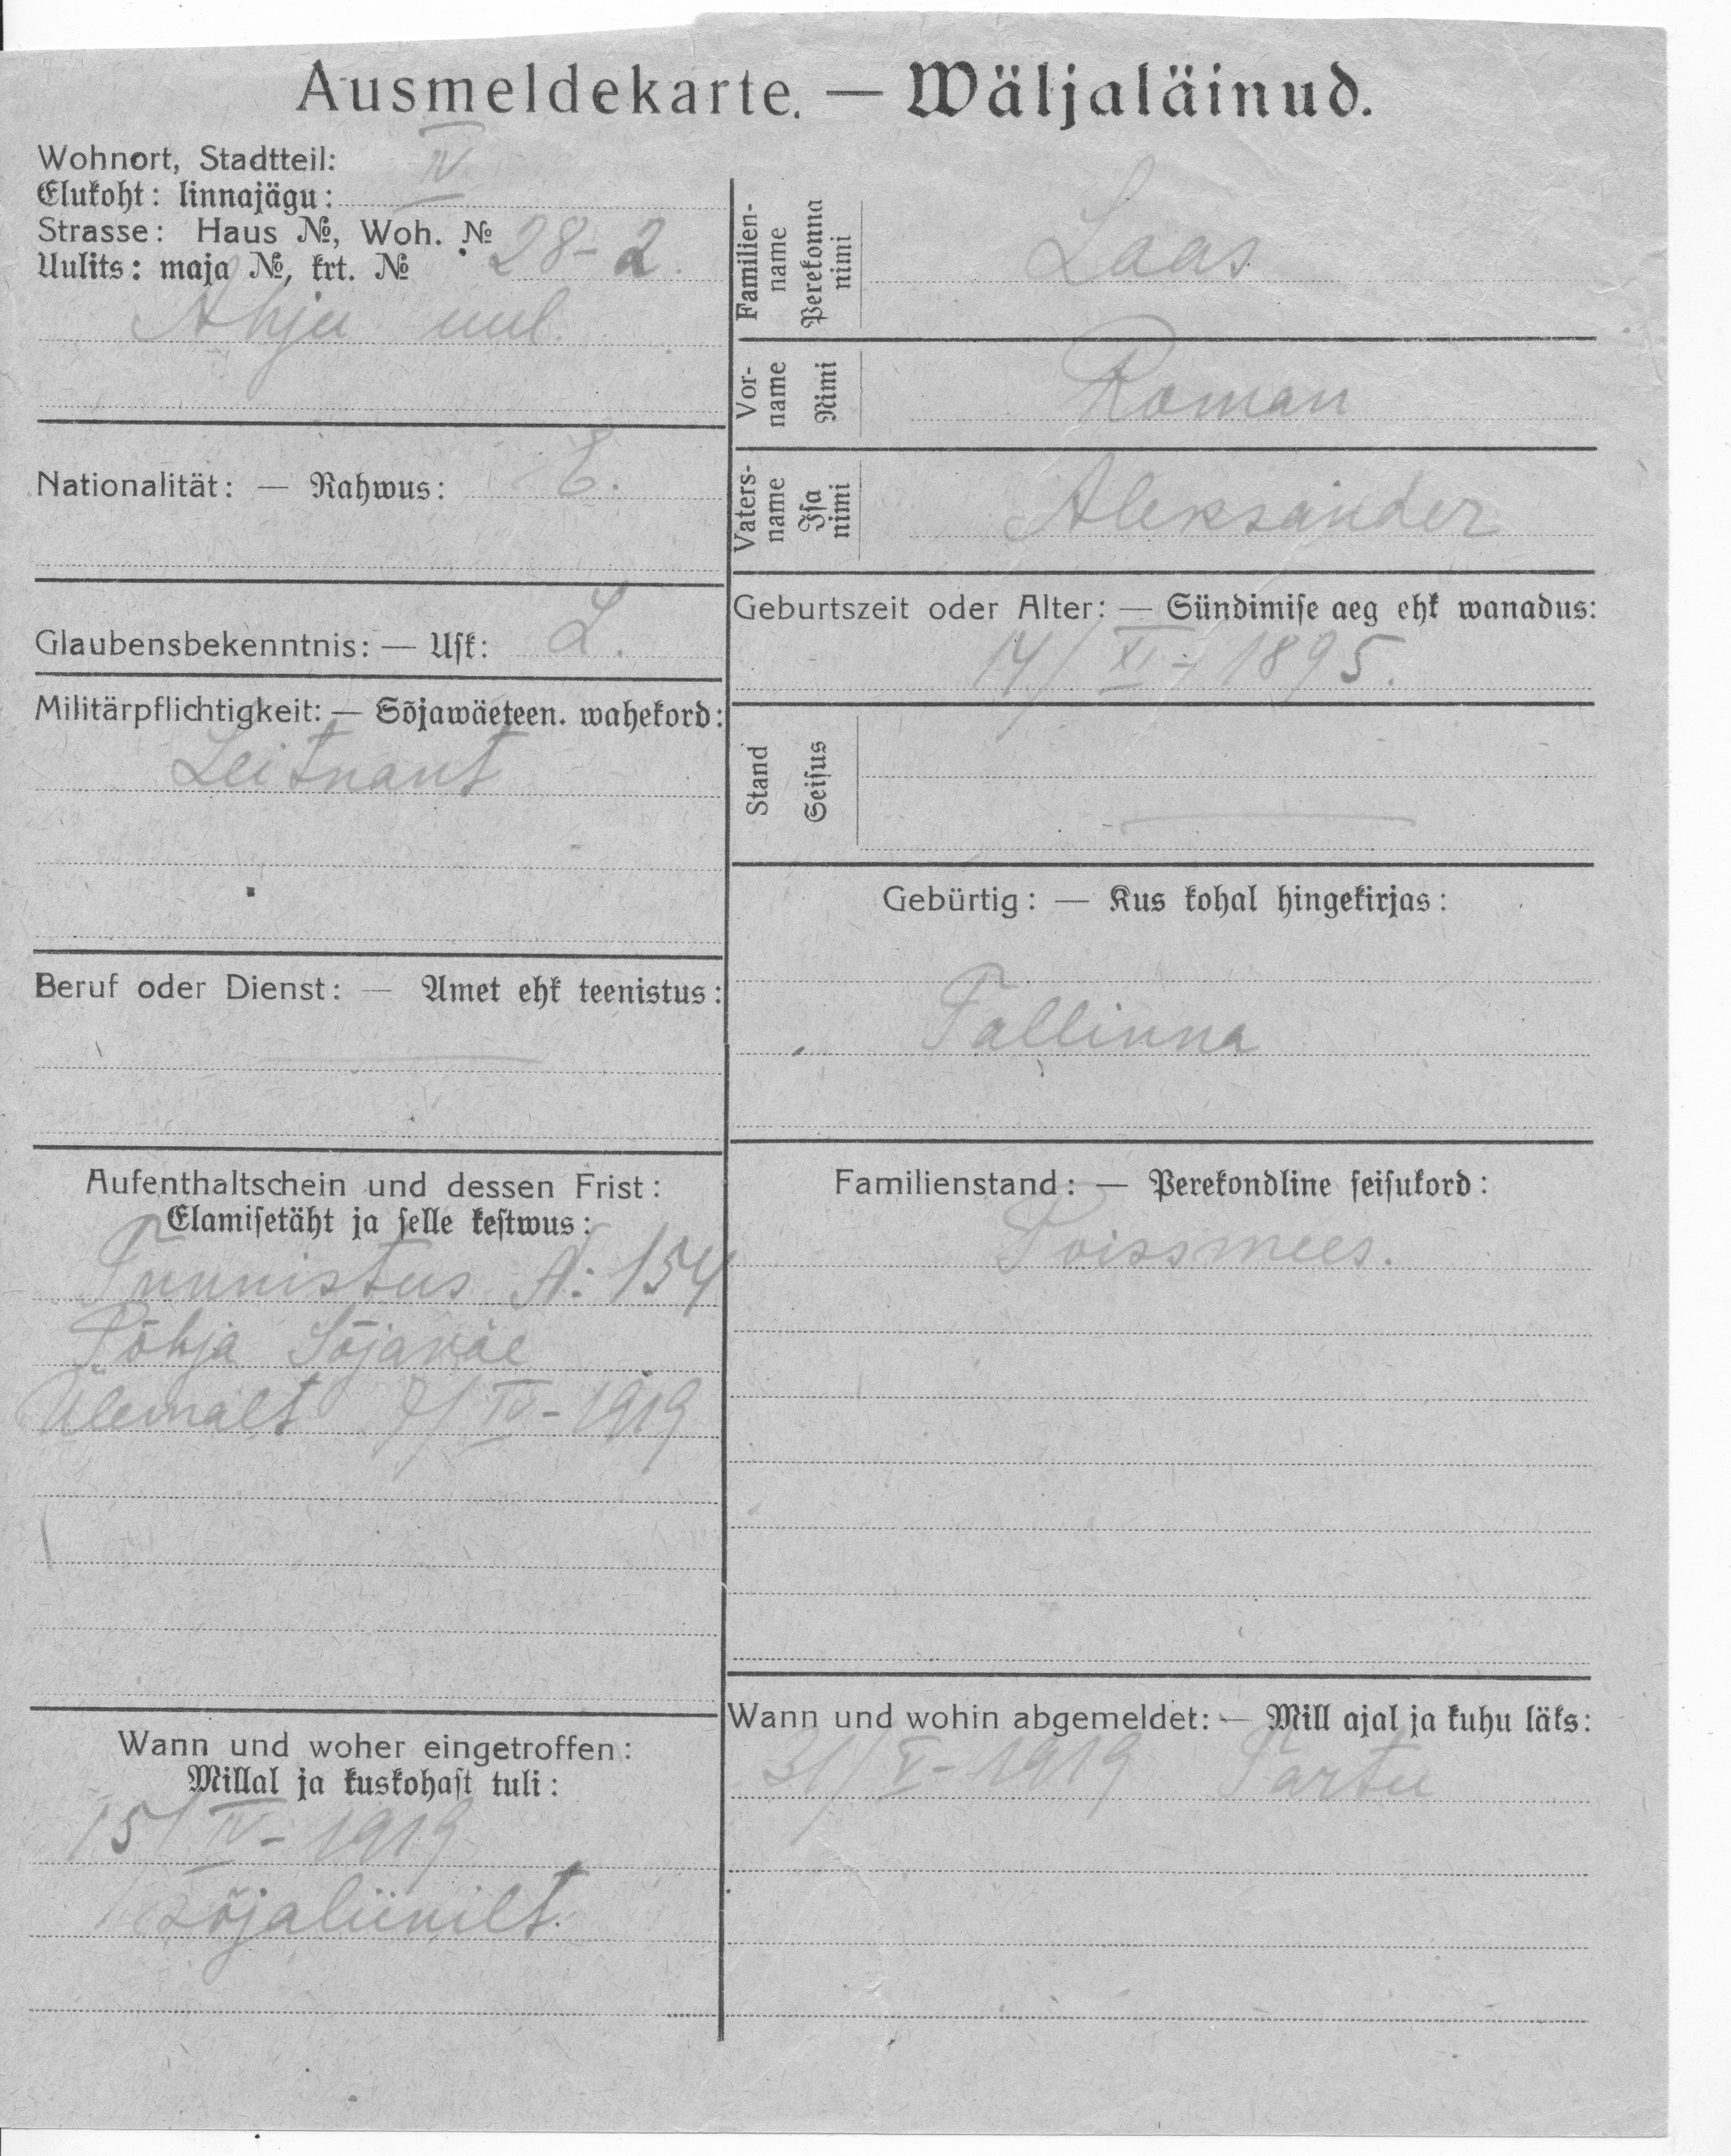 Ausmeldekarte. — Wäljaläinud.
Wohnort, Stadtteil: IV
Elukoht: linnajägu:
Strasse: Haus №, Woh. № 28-2.
Uulits: maja №, krt. №
Ahju uul.
Nationalität: — Rahwus: E.
Glaubensbekenntnis: — Usk: L.
Militärpflichtigkeit: — Sõjawäeteen. wahekord:
Leitnant
Beruf oder Dienst: — Amet ehk teenistus:
Aufenthaltschein und dessen Frist:
Elamisetäht ja selle kestwus:
Tunnistus A: 154
Põhja Sõjaväe
Ülemalt 7/IV-1919
Wann und woher eingetroffen:
Millal ja kuskohast tuli:
15/IV-1919
sõjaliinilt.
Familien-
name
Perekonna
nimi
Laas
Vor-
name
Nimi
Roman
Vaters-
name
Isa
nimi
Aleksander
Geburtszeit oder Alter: — Sündimise aeg ehk wanadus:
14/XI-1895.
Stand
Seisus
Gebürtig: — Kus kohal hingekirjas:
Tallinna
Familienstand: — Perekondline seisukord:
Poissmees.
Wann und wohin abgemeldet: — Mill ajal ja kuhu läks:
31/V-1919 Tartu